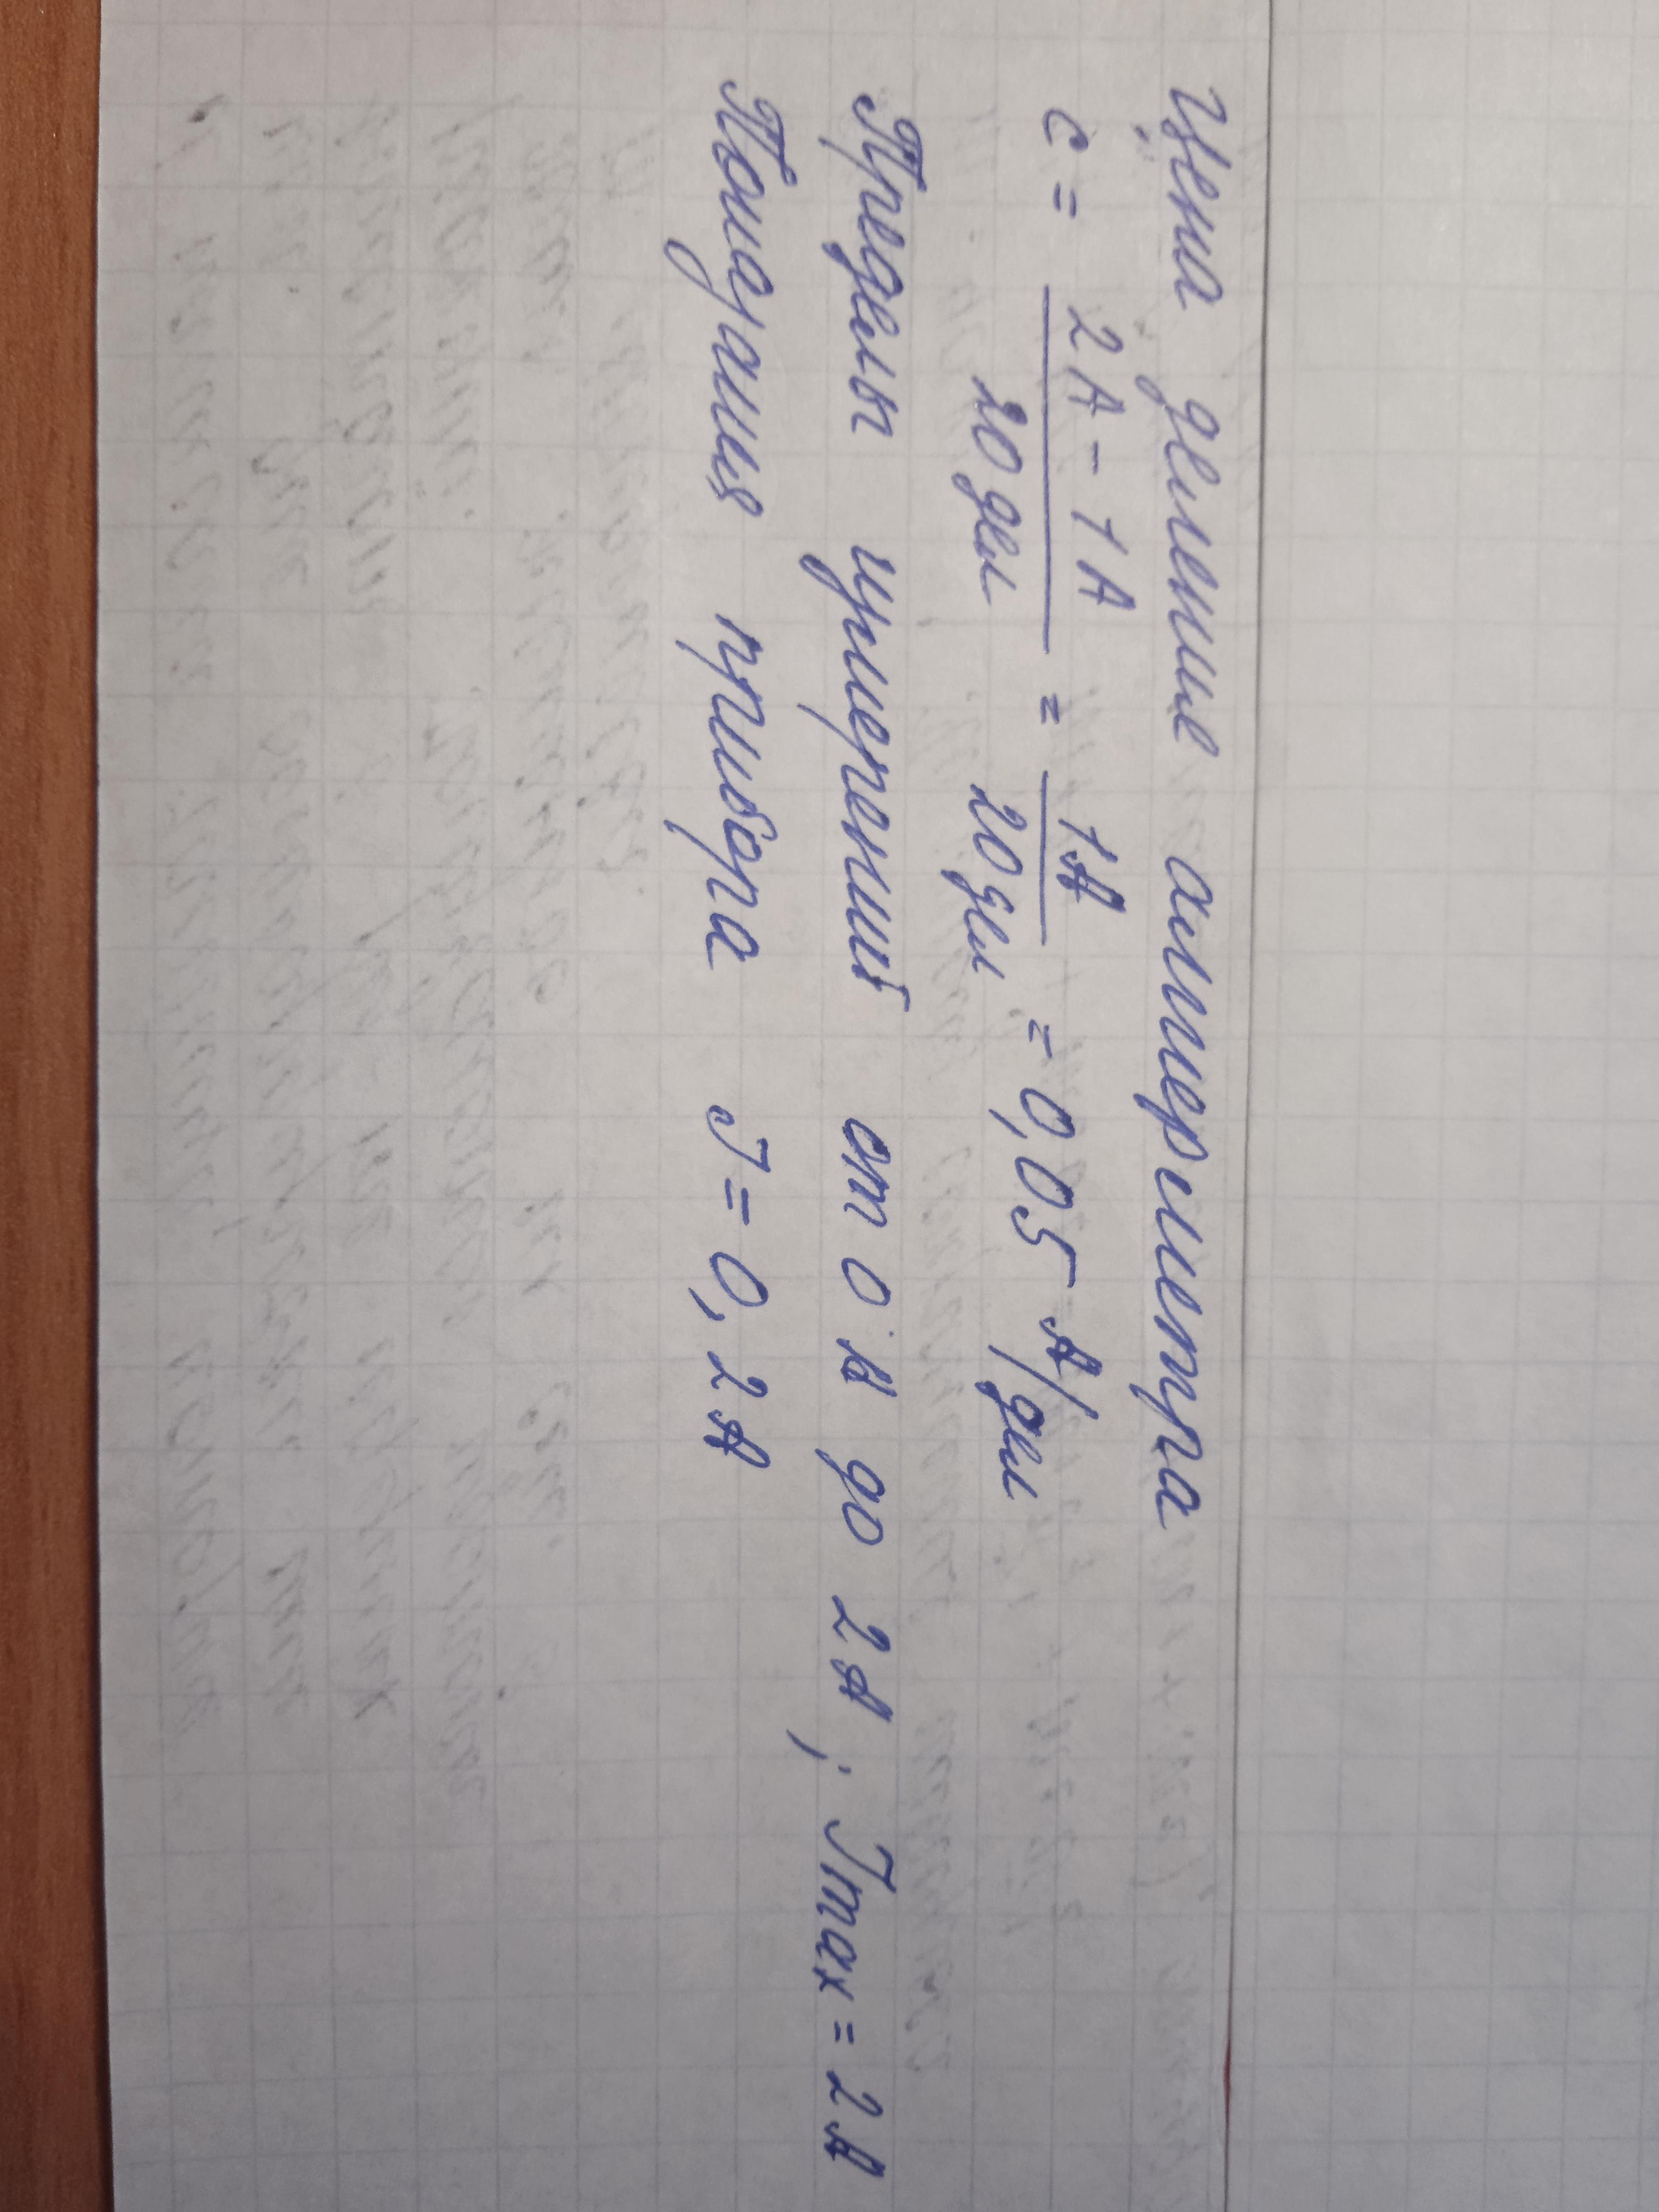 Цена деление амперметра
c = 2А - 1А / 20 дел = 1А / 20 дел = 0,05 А/дел
Пределы измерений от 0 А до 2А; Imax = 2А
Показания прибора I = 0,2А